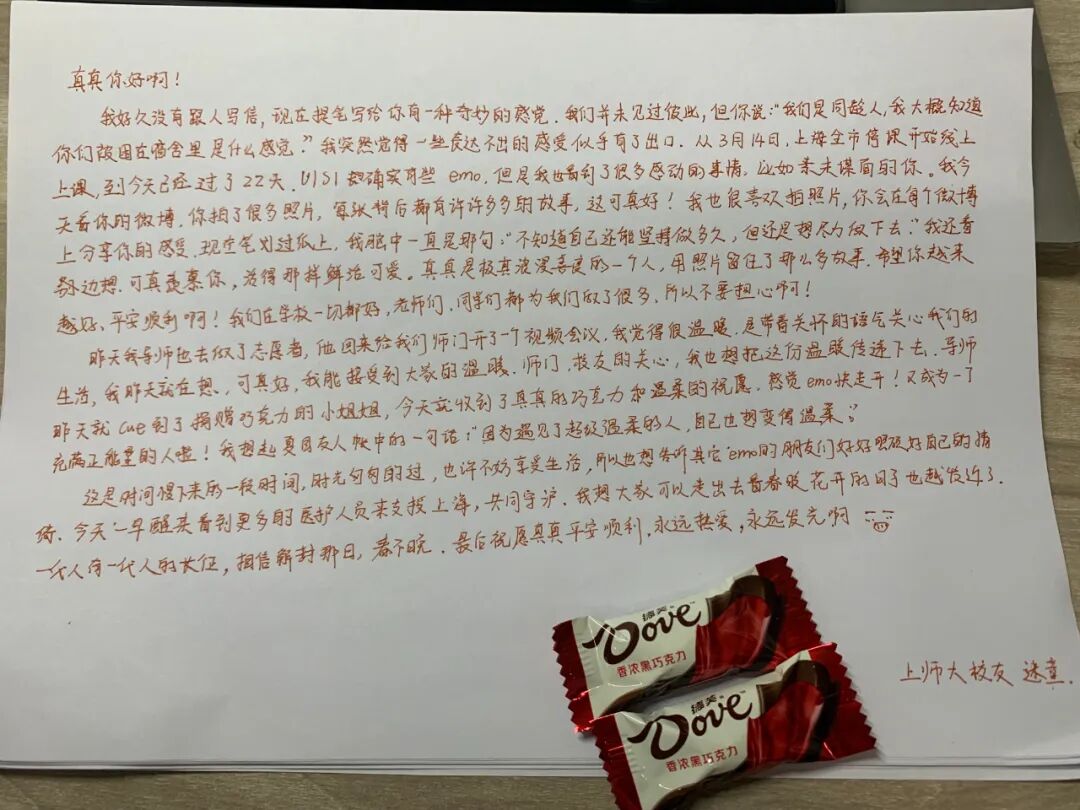 真真你好啊！
我好久没有跟人写信，现在提笔写给你有一种奇妙的感觉．我们并未见过彼此，但你说：“我们是同龄人，我大概知道
你们被困在宿舍里是什么感觉．”我突然觉得一些表达不出的感受似乎有了出口．从3月14日，上海全市停课开始线上
上课，到今天已经过了22天．确实有些emo，但是我也看到了很多感动的事情，比如素未谋面的你。我今
天看你的微博．你拍了很多照片，每张背后都有许许多多的故事，这可真好！我也很喜欢拍照片，你会在每个微博
上分享你的感受．现在笔划过纸上，我脑中一直是那句：“不知道自己还能坚持做多久，但还是想尽力做下去．”我边看
边想．可真羡慕你，活得那样鲜活可爱。真真是极其浪漫的一个人，用照片留住了那么多故事．希望你越来
越好、平安顺利啊！我们在学校一切都好，老师们、同学们都为我们做了很多，所以不要担心啊！
昨天我导师也去做了志愿者，他回来给我们师门开了一个视频会议，我觉得很温暖．是带着关怀的语气关心我们的
生活，我昨天就在想．可真好，我能接受到大家的温暖．师门、校友的关心，我也想把这份温暖传递下去．导师
昨天就cue到了捐赠巧克力的小姐姐，今天就收到了真真的巧克力和温柔的祝愿．感觉emo快走开！又成为一个
充满正能量的人啦！我想起夏目友人帐中的一句话：“因为遇见了超级温柔的人，自己也想变得温柔．”
这是时间慢下来的一段时间，时光匆匆的过，也许不妨享受生活，所以也想告诉其它emo的朋友们好好照顾好自己的情
绪．今天一早醒来看到更多的医护人员来支援上海，共同守沪．我想大家可以走出去看春暖花开的日子也越发近了．
一代人有一代人的长征，相信解封那日，春不晚．最后祝愿真真平安顺利，永远热爱，永远发光啊
上师大校友
德芙
Dove
香浓黑巧克力
德芙
Dove
香浓黑巧克力